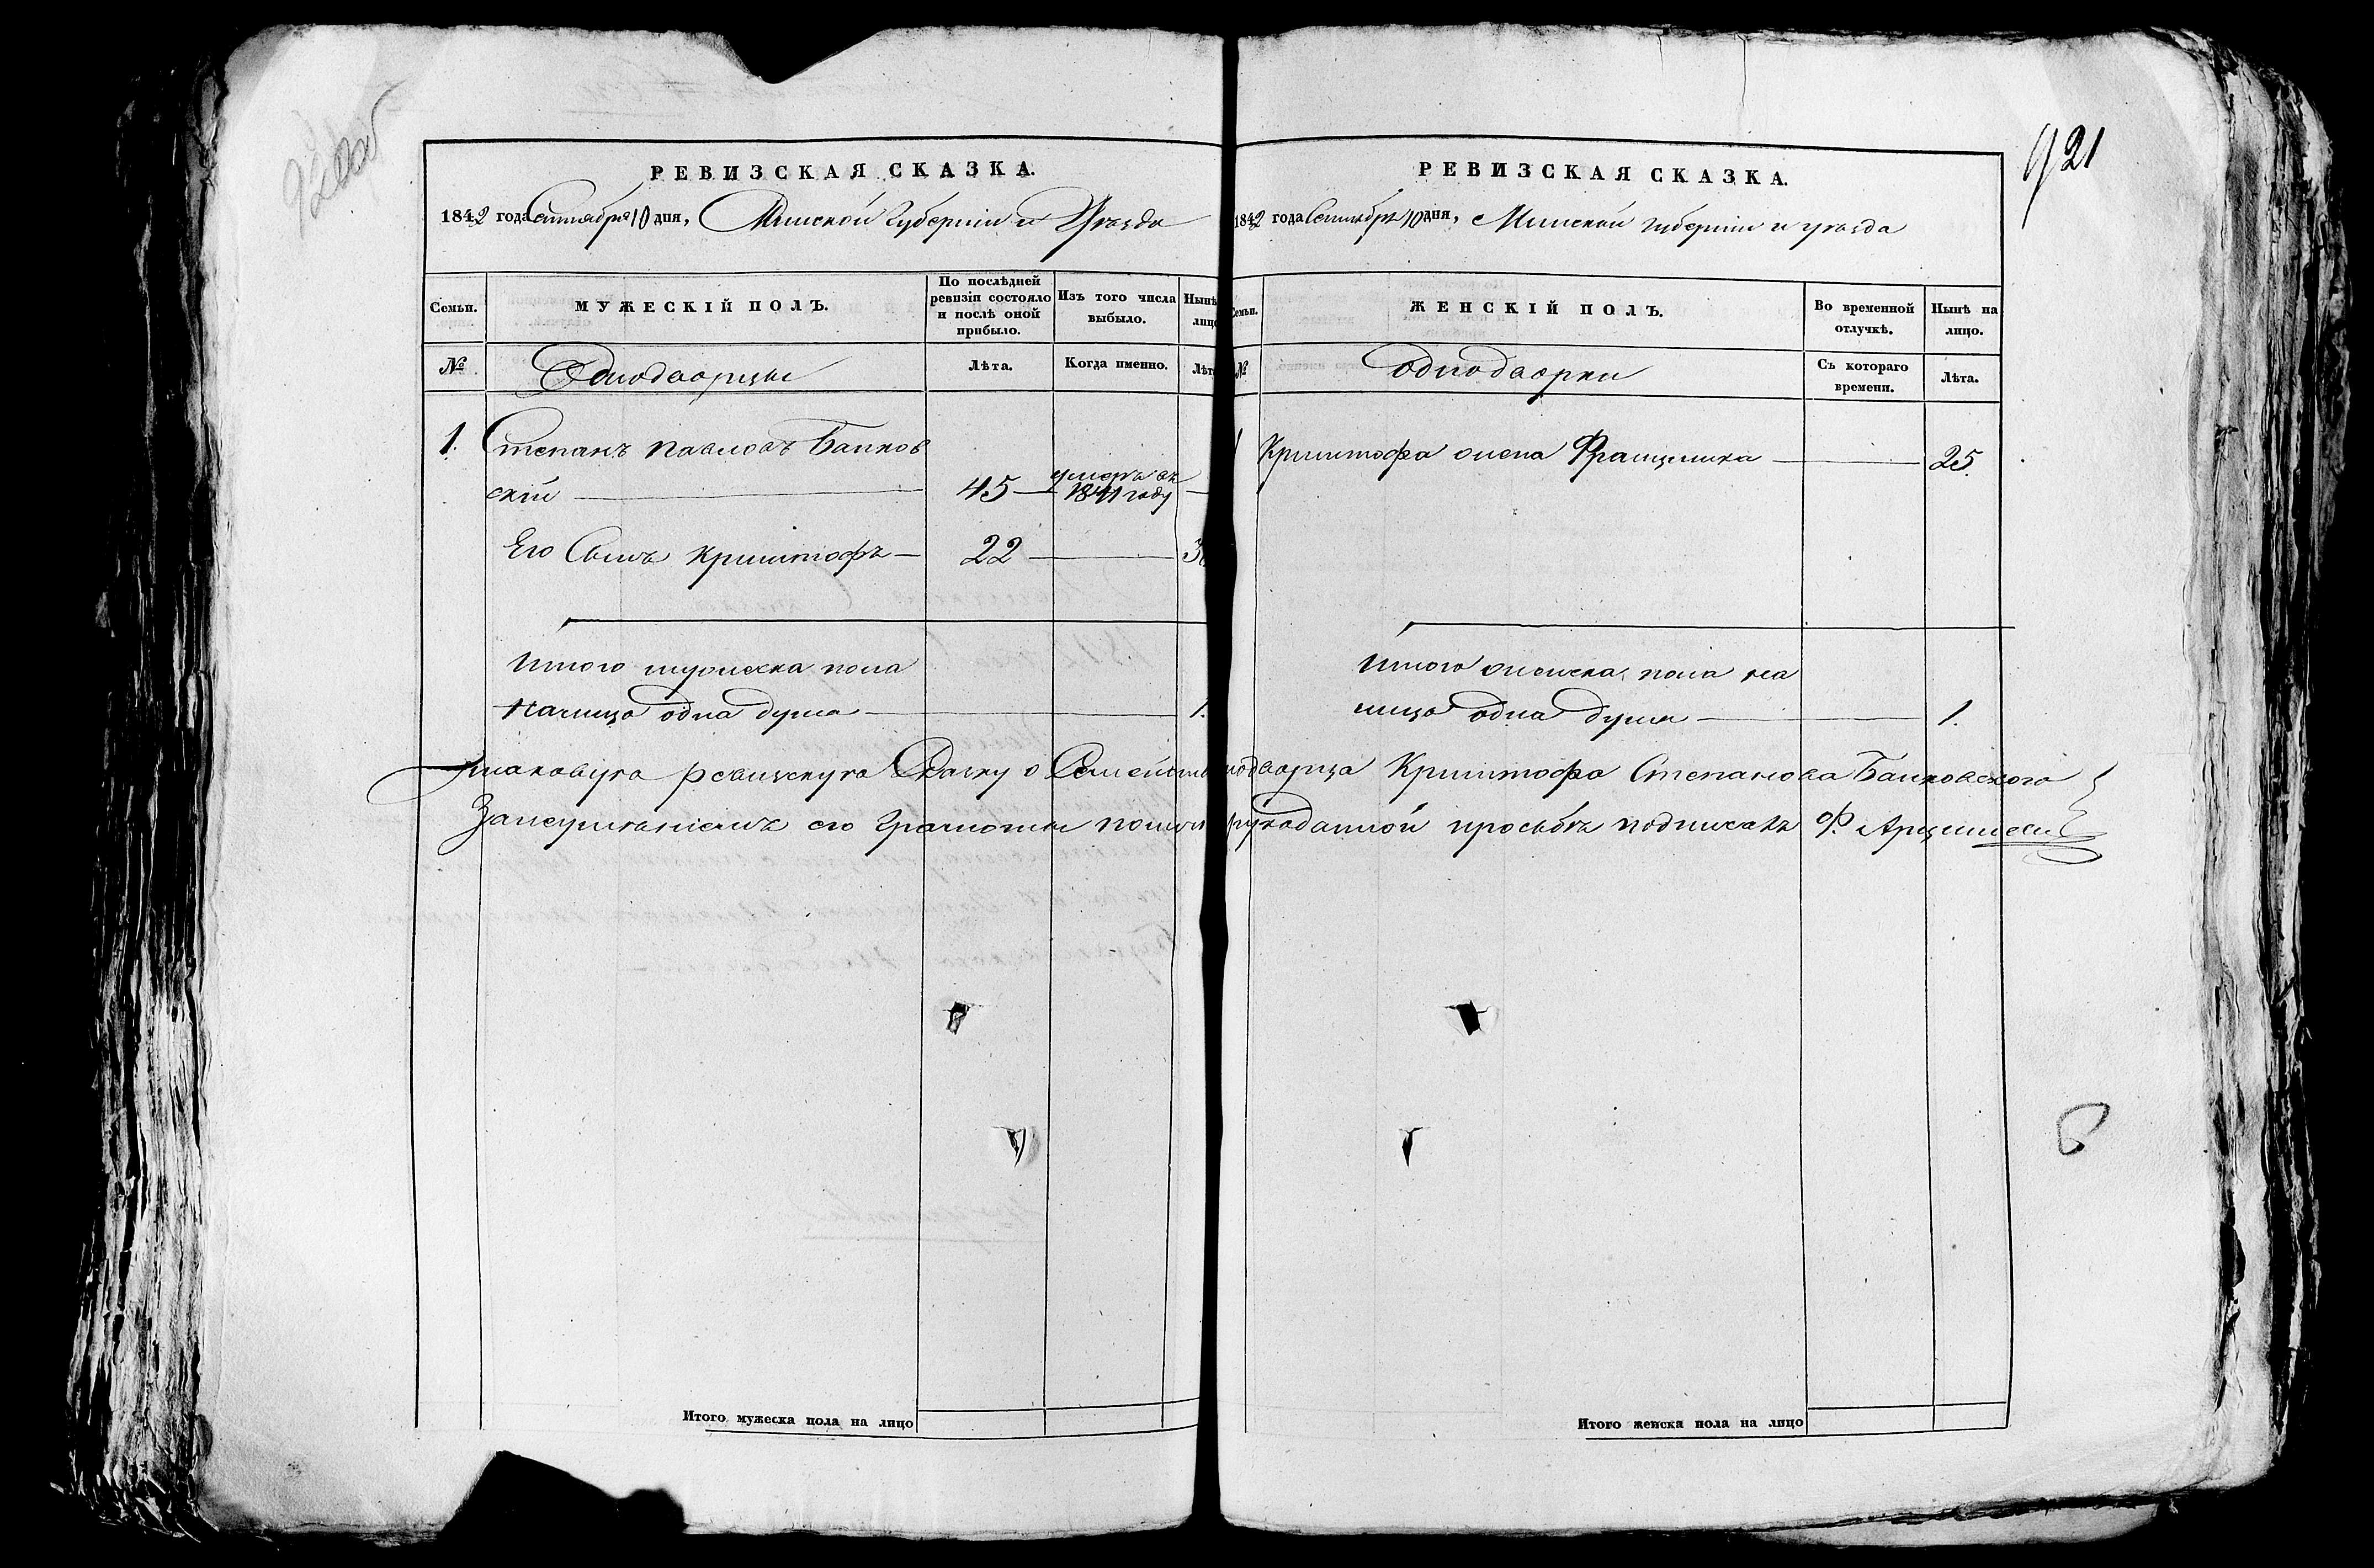 РЕВИЗСКАЯ СКАЗКА.
1842 года Сентября 10 дня, Минской Губернии и Уѣзда
Семьи.
МУЖЕСКІЙ ПОЛЪ.
По послѣдней ревизіи состояло и послѣ оной прибыло.
Изъ того числа выбыло.
Нынѣ лицо
№
Однодворцы
Лѣта.
Когда именно.
Лѣт
1. Степанъ Павловъ Банков
скій 45 умеръ въ 1841 году
Его Сынъ Криштофъ 22 3
Итого мужеска пола
налицо одна душа 1.
Итого мужеска пола на лицо
921
РЕВИЗСКАЯ СКАЗКА.
1842 года Сентября 10 дня, Минской губерніи и уѣзда
Семьи.
ЖЕНСКІЙ ПОЛЪ.
Во временной отлучкѣ.
Нынѣ на лицо.
№
Однодворки
Съ котораго времени.
Лѣта.
1 Криштофа жена Францишка 25.
Итого женска пола на
лицо одна душа 1.
Таковую ревизскую Сказку о Семейств нодворца Криштофа Степанова Банковского
За неумѣніемъ его Грамоты по рукоданной просьбѣ подписалъ Ф.
8
Итого женска пола на лицо